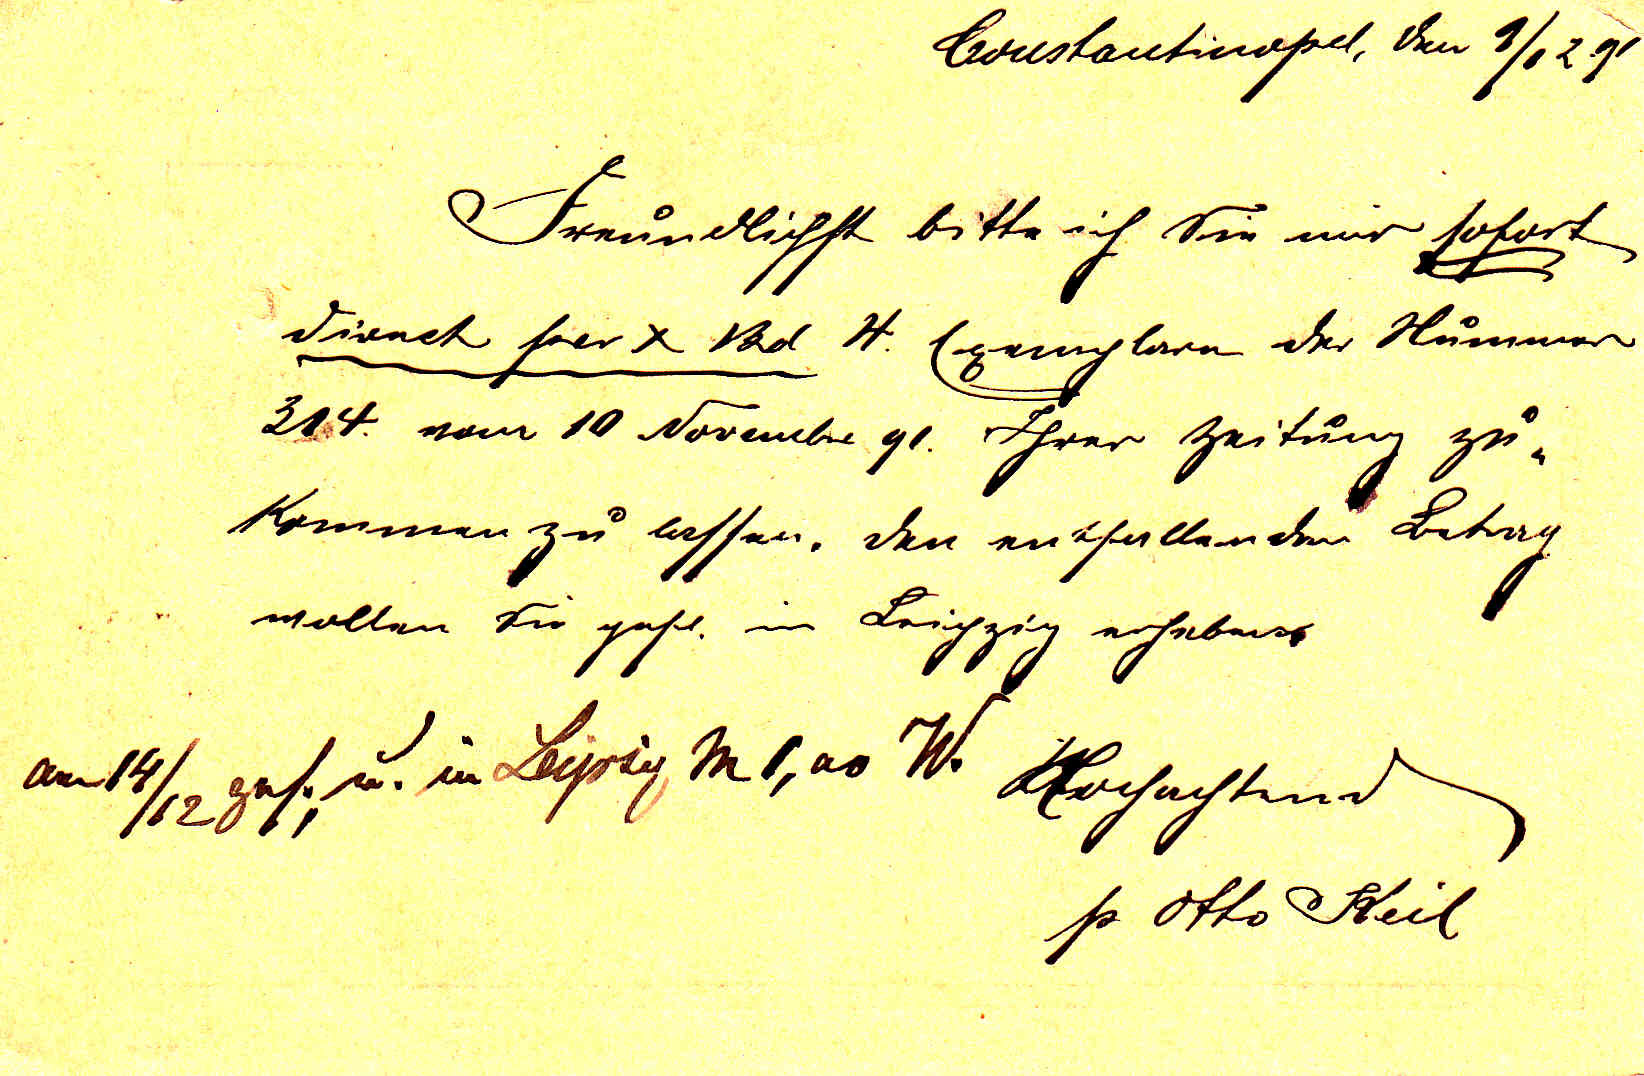 Constantinopel, den 9/12 91
Freundlichst bitte ich Sie mir sofort
direct per X Bd 4. Exemplare der Nummer
314. vom 10 November 91. Ihrer Zeitung zu„
kommen zu lassen. den entfallenden Betrag
wollen Sie gefl. in Leipzig erheben
am 14/12 gef., u. in Leipzig M 1,20 W.
Hochachtend
p Otto Keil